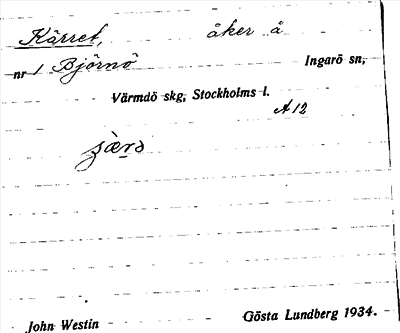 Kärret, åker å
nr 1 Björnö Ingarö sn,
Värmdö skg, Stockholms l.
A 12
John Westin Gösta Lundberg 1934.